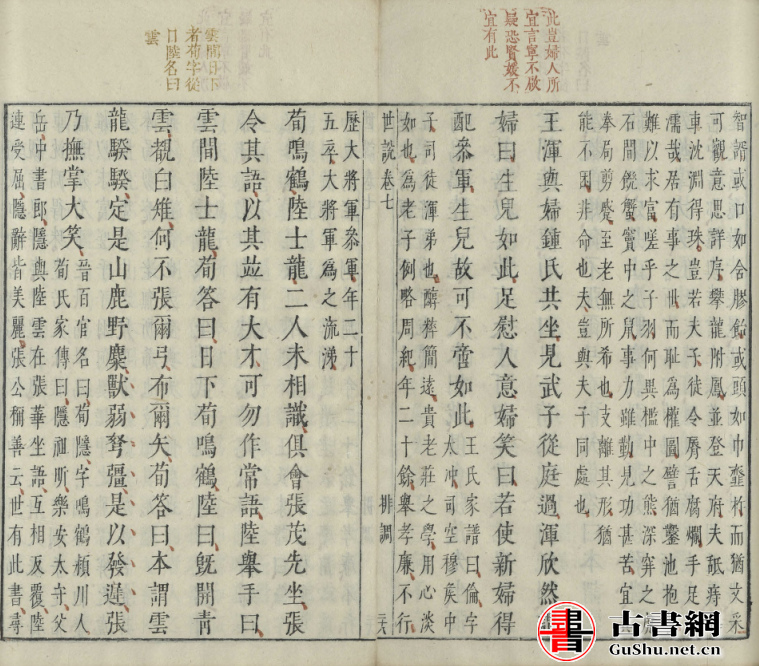 此豈婦人所
宜言寧不啟
疑恐賢媛不
宜有此
智諝或口如含膠飴或頭如巾虀杵而猶文采
可觀意思詳序攀龍附鳳並登天府夫舐痔得
車沈淵得珠豈若夫子徒令脣舌腐爛手足沾
濡哉居有事之世而恥為權圖譬猶鑿池抱甕
難以求富嗟乎子羽何異檻中之熊深穽之虎
石間饑蟹竇中之鼠事力雖勤見功甚苦宜其
拳局剪蹙至老無所希也支離其形猶
能不困非命也夫豈與夫子同處也
王渾與婦鍾氏共坐見武子從庭過渾欣然謂
婦曰生兒如此足慰人意婦笑曰若使新婦得
配參軍生兒故可不啻如此
王氏家譜曰倫字
太冲司空穆矦中
子司徒渾弟也醇粹簡遠貴老莊之學用心淡
如也為老子例略周紀年二十餘舉孝廉不行
世說卷七
排調
歷大將軍參軍年二十
五卒大將軍為之流涕
荀鳴鶴陸士龍二人未相識俱會張茂先坐張
令共語以其並有大才可勿作常語陸舉手曰
雲間陸士龍荀答曰日下荀鳴鶴陸曰旣開青
雲覩白雉何不張爾弓布爾矢荀答曰本謂雲
龍騤騤定是山鹿野麋獸弱弩彊是以發遲張
乃撫掌大笑
晉百官名曰荀隱字鳴鶴潁川人
荀氏家傳曰隱祖昕樂安太守父
岳中書郎隱與陸雲在張華坐語互相反覆陸
連受屈隱辭皆美麗張公稱善云世有此書尋
雲間日下
者荀字從
日陸名曰
雲
書
古書網
GuShu.net.cn